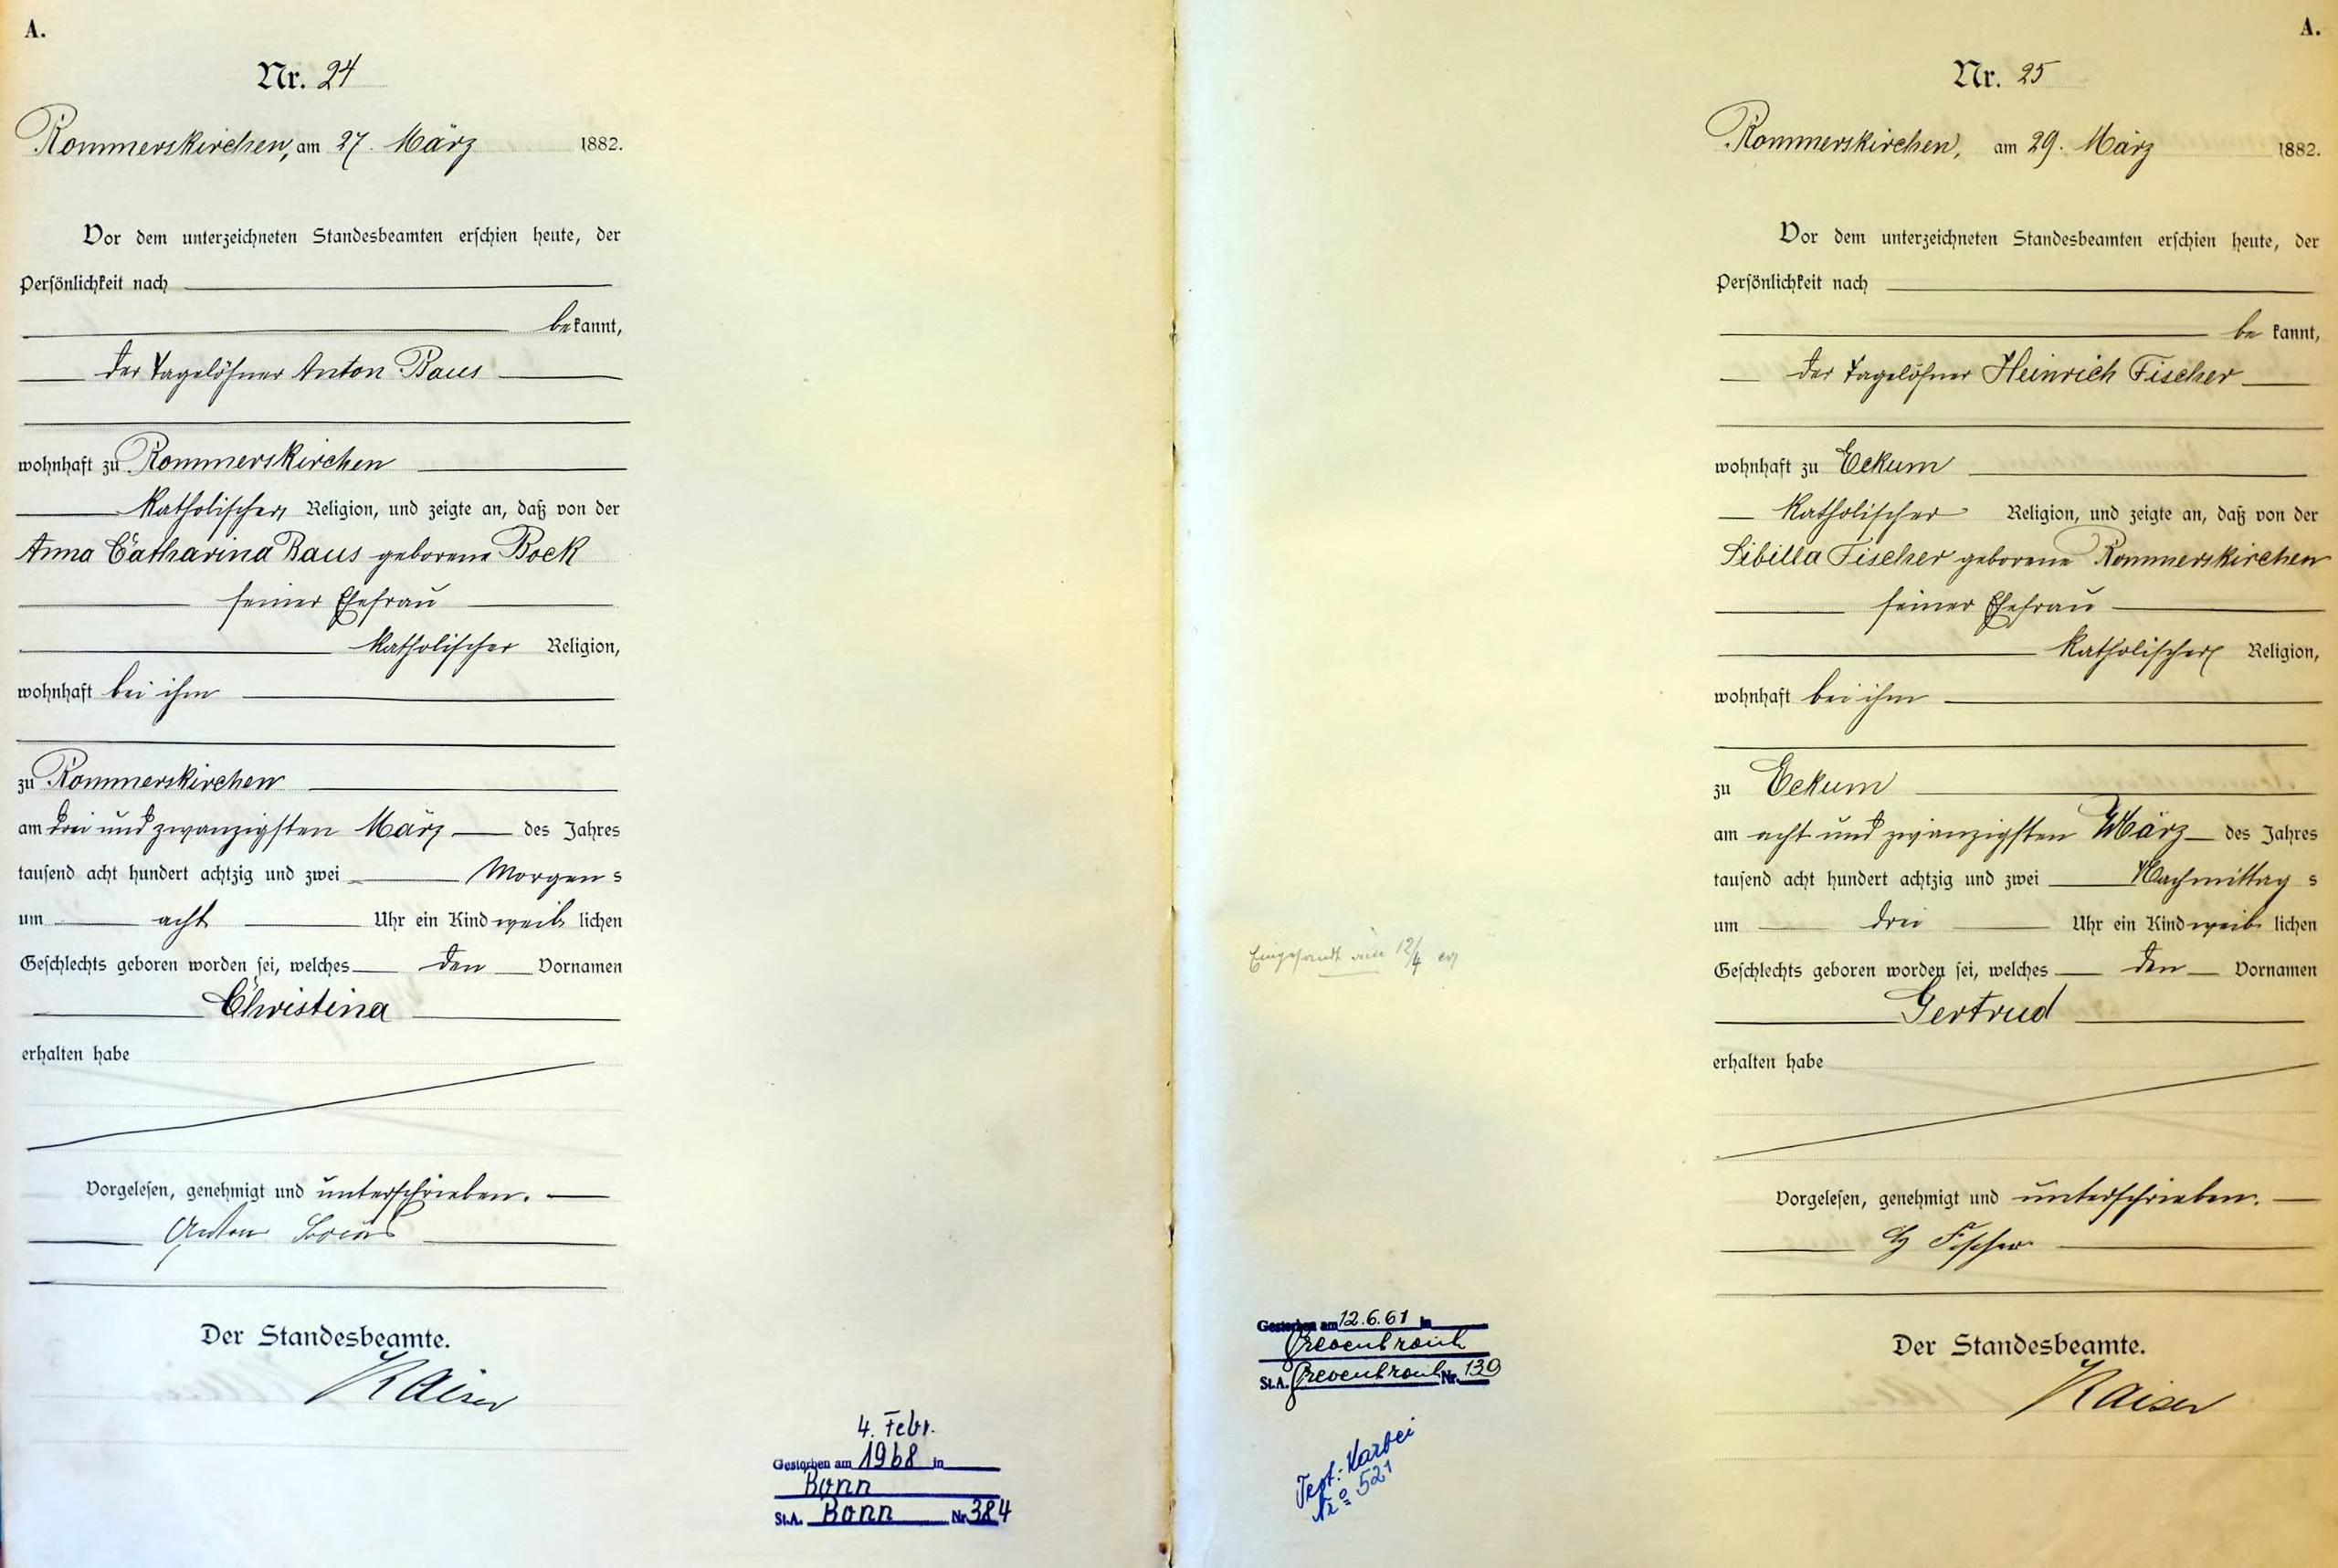 A.
Nr. 24
Rommerskirchen, am 27. März 1882.
Vor dem unterzeichneten Standesbeamten erschien heute, der
Persönlichkeit nach
bekannt,
der Tagelöhner Anton Baus
wohnhaft zu Rommerskirchen
katholischer Religion, und zeigte an, daß von der
Anna Catharina Baus geborene Bock
seiner Ehefrau
katholischer Religion,
wohnhaft bei ihm
zu Rommerskirchen
am drei und zwanzigsten März des Jahres
tausend acht hundert achtzig und zwei Morgens
um acht Uhr ein Kind weiblichen
Geschlechts geboren worden sei, welches den Vornamen
Christina
erhalten habe
Vorgelesen, genehmigt und unterschrieben.
Anton Baus
Der Standesbeamte.
Kaiser
4. Febr.
Gestorben am 1968 in
Bonn
St.A. Bonn Nr. 384
A.
Nr. 25
Rommerskirchen, am 29. März 1882.
Vor dem unterzeichneten Standesbeamten erschien heute, der
Persönlichkeit nach
bekannt,
der Tagelöhner Heinrich Fischer
wohnhaft zu Eckum
katholischer Religion, und zeigte an, daß von der
Sibilla Fischer geborene Rommerskirchen
seiner Ehefrau
katholischer Religion,
wohnhaft bei ihm
zu Eckum
am acht und zwanzigsten März des Jahres
tausend acht hundert achtzig und zwei Nachmittags
um drei Uhr ein Kind weiblichen
Geschlechts geboren worden sei, welches den Vornamen
Gertrud
erhalten habe
Vorgelesen, genehmigt und unterschrieben.
H Fischer
Der Standesbeamte.
Kaiser
Eingesandt am 12/4
Gestorben am 12.6.61 in
Grevenbroich
St.A. Grevenbroich Nr. 130
Test: Kartei
No 521